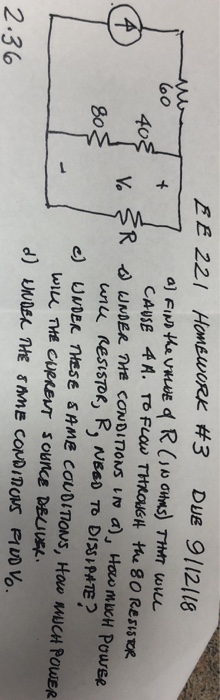 EE 221 HOMEWORK #3 DUE 9/12/18
a) FIND the VALUE of R (in ohms) THAT WILL
CAUSE 4 A. TO FLOW THROUGH the 80 RESISTOR
b) UNDER THE CONDITIONS IN a), HOW MUCH POWER
WILL RESISTOR, R, NEED TO DISSIPATE?
c) UNDER THESE SAME CONDITIONS, HOW MUCH POWER
WILL THE CURRENT SOURCE DELIVER.
d) UNDER THE SAME CONDITIONS FIND Vo.
60
40
+
Vo
R
80
-
2.36